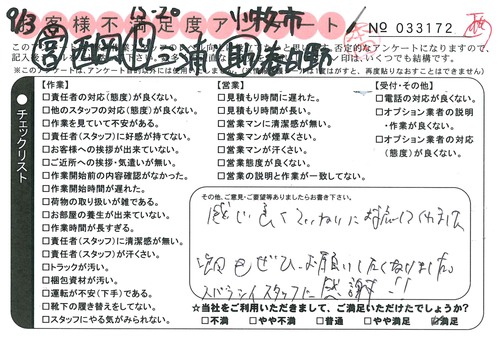 9/3 12-20 小牧市
お客様不満足度アンケート
№ 033172
チェックリスト
【作業】
□責任者の対応(態度)が良くない。
□他のスタッフの対応(態度)が良くない。
□作業を見ていて不安がある。
□責任者(スタッフ)に好感が持てない。
□お客様への挨拶が出来ていない。
□ご近所への挨拶・気遣いが無い。
□作業開始前の内容確認がなかった。
□作業開始時間が遅れた。
□荷物の取り扱いが雑である。
□お部屋の養生が出来ていない。
□作業時間が長すぎる。
□責任者(スタッフ)に清潔感が無い。
□責任者(スタッフ)が汗くさい。
□トラックが汚い。
□梱包資材が汚い。
□運転が不安(下手)である。
□靴下の履き替えをしてない。
□スタッフにやる気がみられない。
【営業】
□見積もり時間に遅れた。
□見積もり時間が長い。
□営業マンに清潔感が無い。
□営業マンが煙草くさい。
□営業マンが汗くさい。
□営業態度が良くない。
□営業の説明と作業が一致してない。
【受付・その他】
□電話の対応が良くない。
□オプション業者の説明
・作業が良くない。
□オプション業者の対応
(態度)が良くない。
その他、ご意見・ご要望等ありましたらお書き下さい。
感じ良くていねいに対応してくれた
次回もぜひお願いしたくなりました。
スバラシイスタッフに感謝!!
☆当社をご利用いただきまして、ご満足いただけたでしょうか?
□不満 □やや不満 □普通 □やや満足 ☑満足